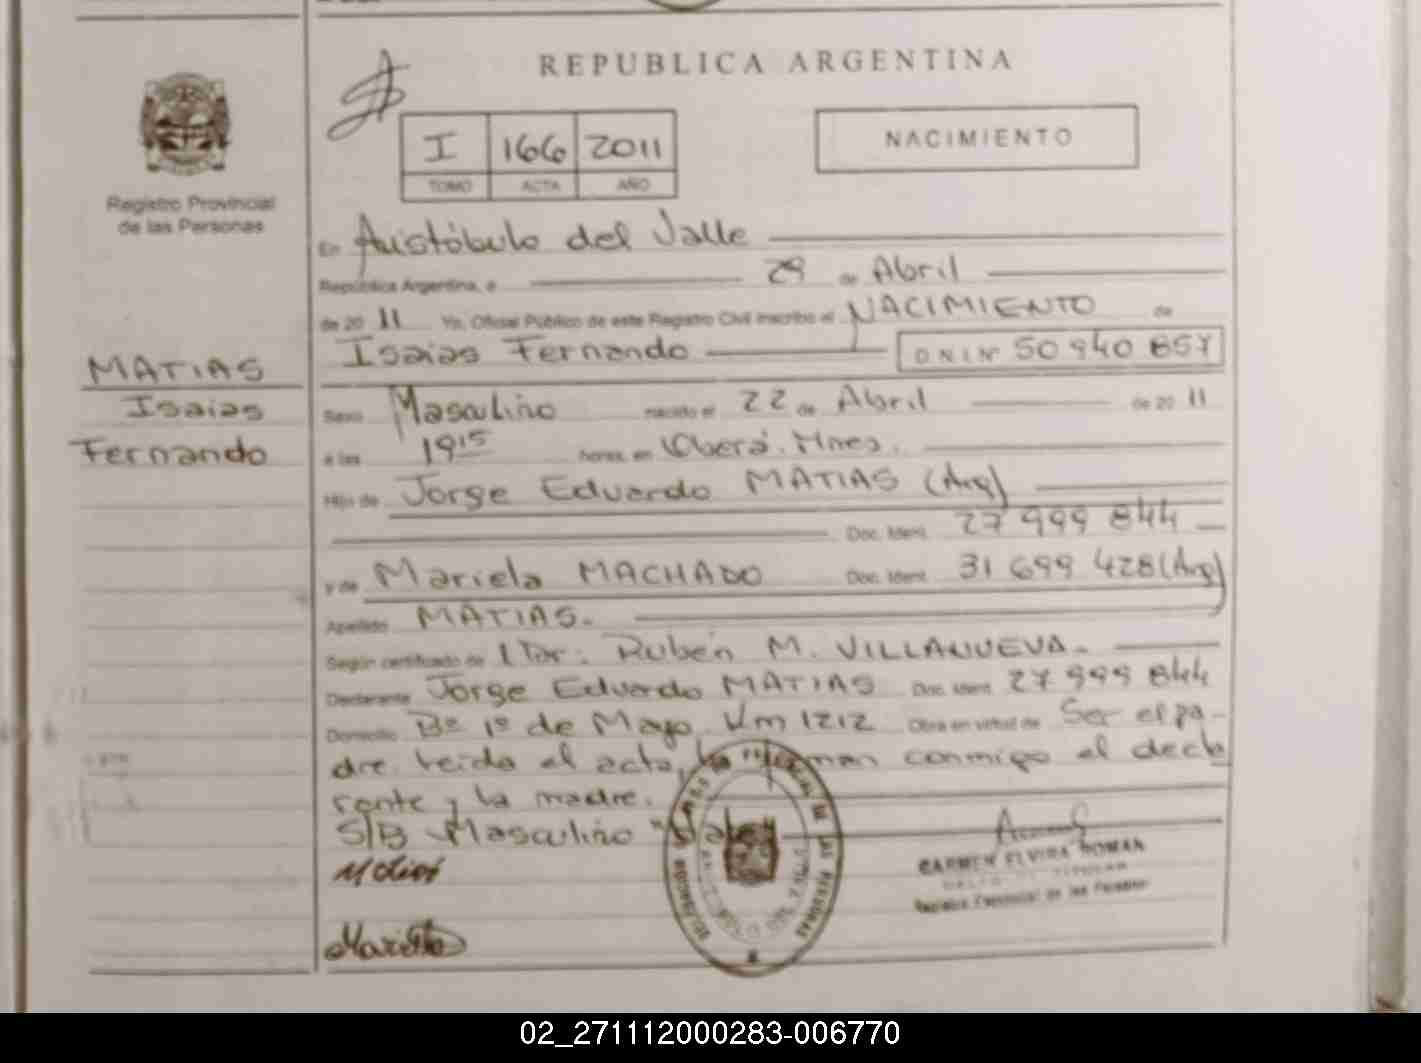 REPUBLICA ARGENTINA
I 166 2011
TOMO ACTA AÑO
NACIMIENTO
Registro Provincial
de las Personas
En Aristóbulo del Valle
República Argentina, a 29 de Abril
de 2011 Yo, Oficial Público de este Registro Civil inscribo el NACIMIENTO de
Isaias Fernando D N I Nº 50 940 857
MATIAS
Isaias
Fernando
Sexo Masculino nacido el 22 de Abril de 2011
a las 19 15 horas, en Oberá. Mnes.
Hijo de Jorge Eduardo MATIAS (Arg)
Doc. Ident. 27 999 844
y de Mariela MACHADO Doc. Ident. 31 699 428 (Arg)
Apellido MATIAS.
Según certificado de Dr. Rubén M. VILLANUEVA.
Declarante Jorge Eduardo MATIAS Doc. Ident. 27 999 844
Domicilio Bº 1º de Mayo, Km 1212 Obra en virtud de Ser el pa-
dre. Leida el acta, la firman conmigo el decla
rante y la madre.
S/B Masculino "Vale"
CARMEN ELVIRA ROMAN
Registro Provincial de las Personas
02_271112000283-006770